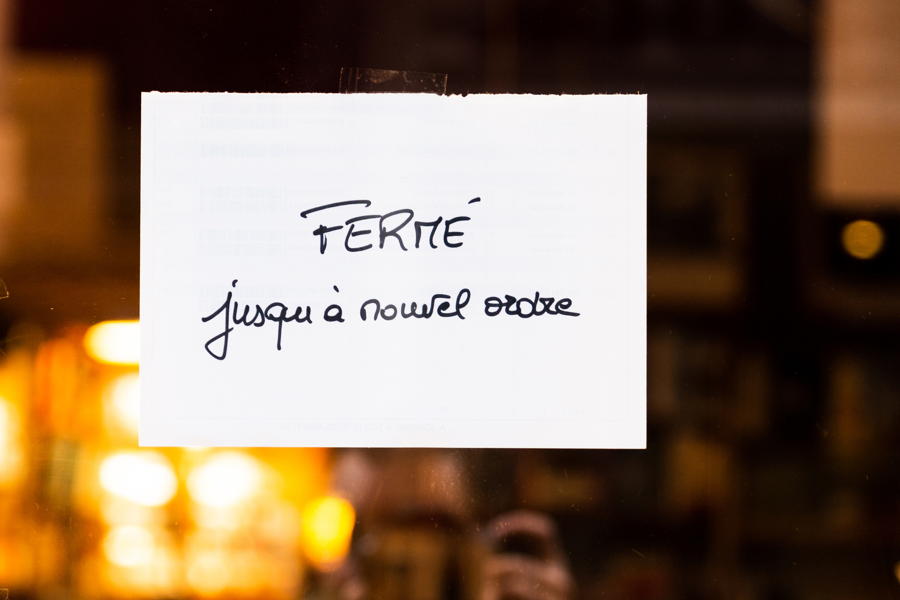 FERMÉ
jusqu à nouvel ordre